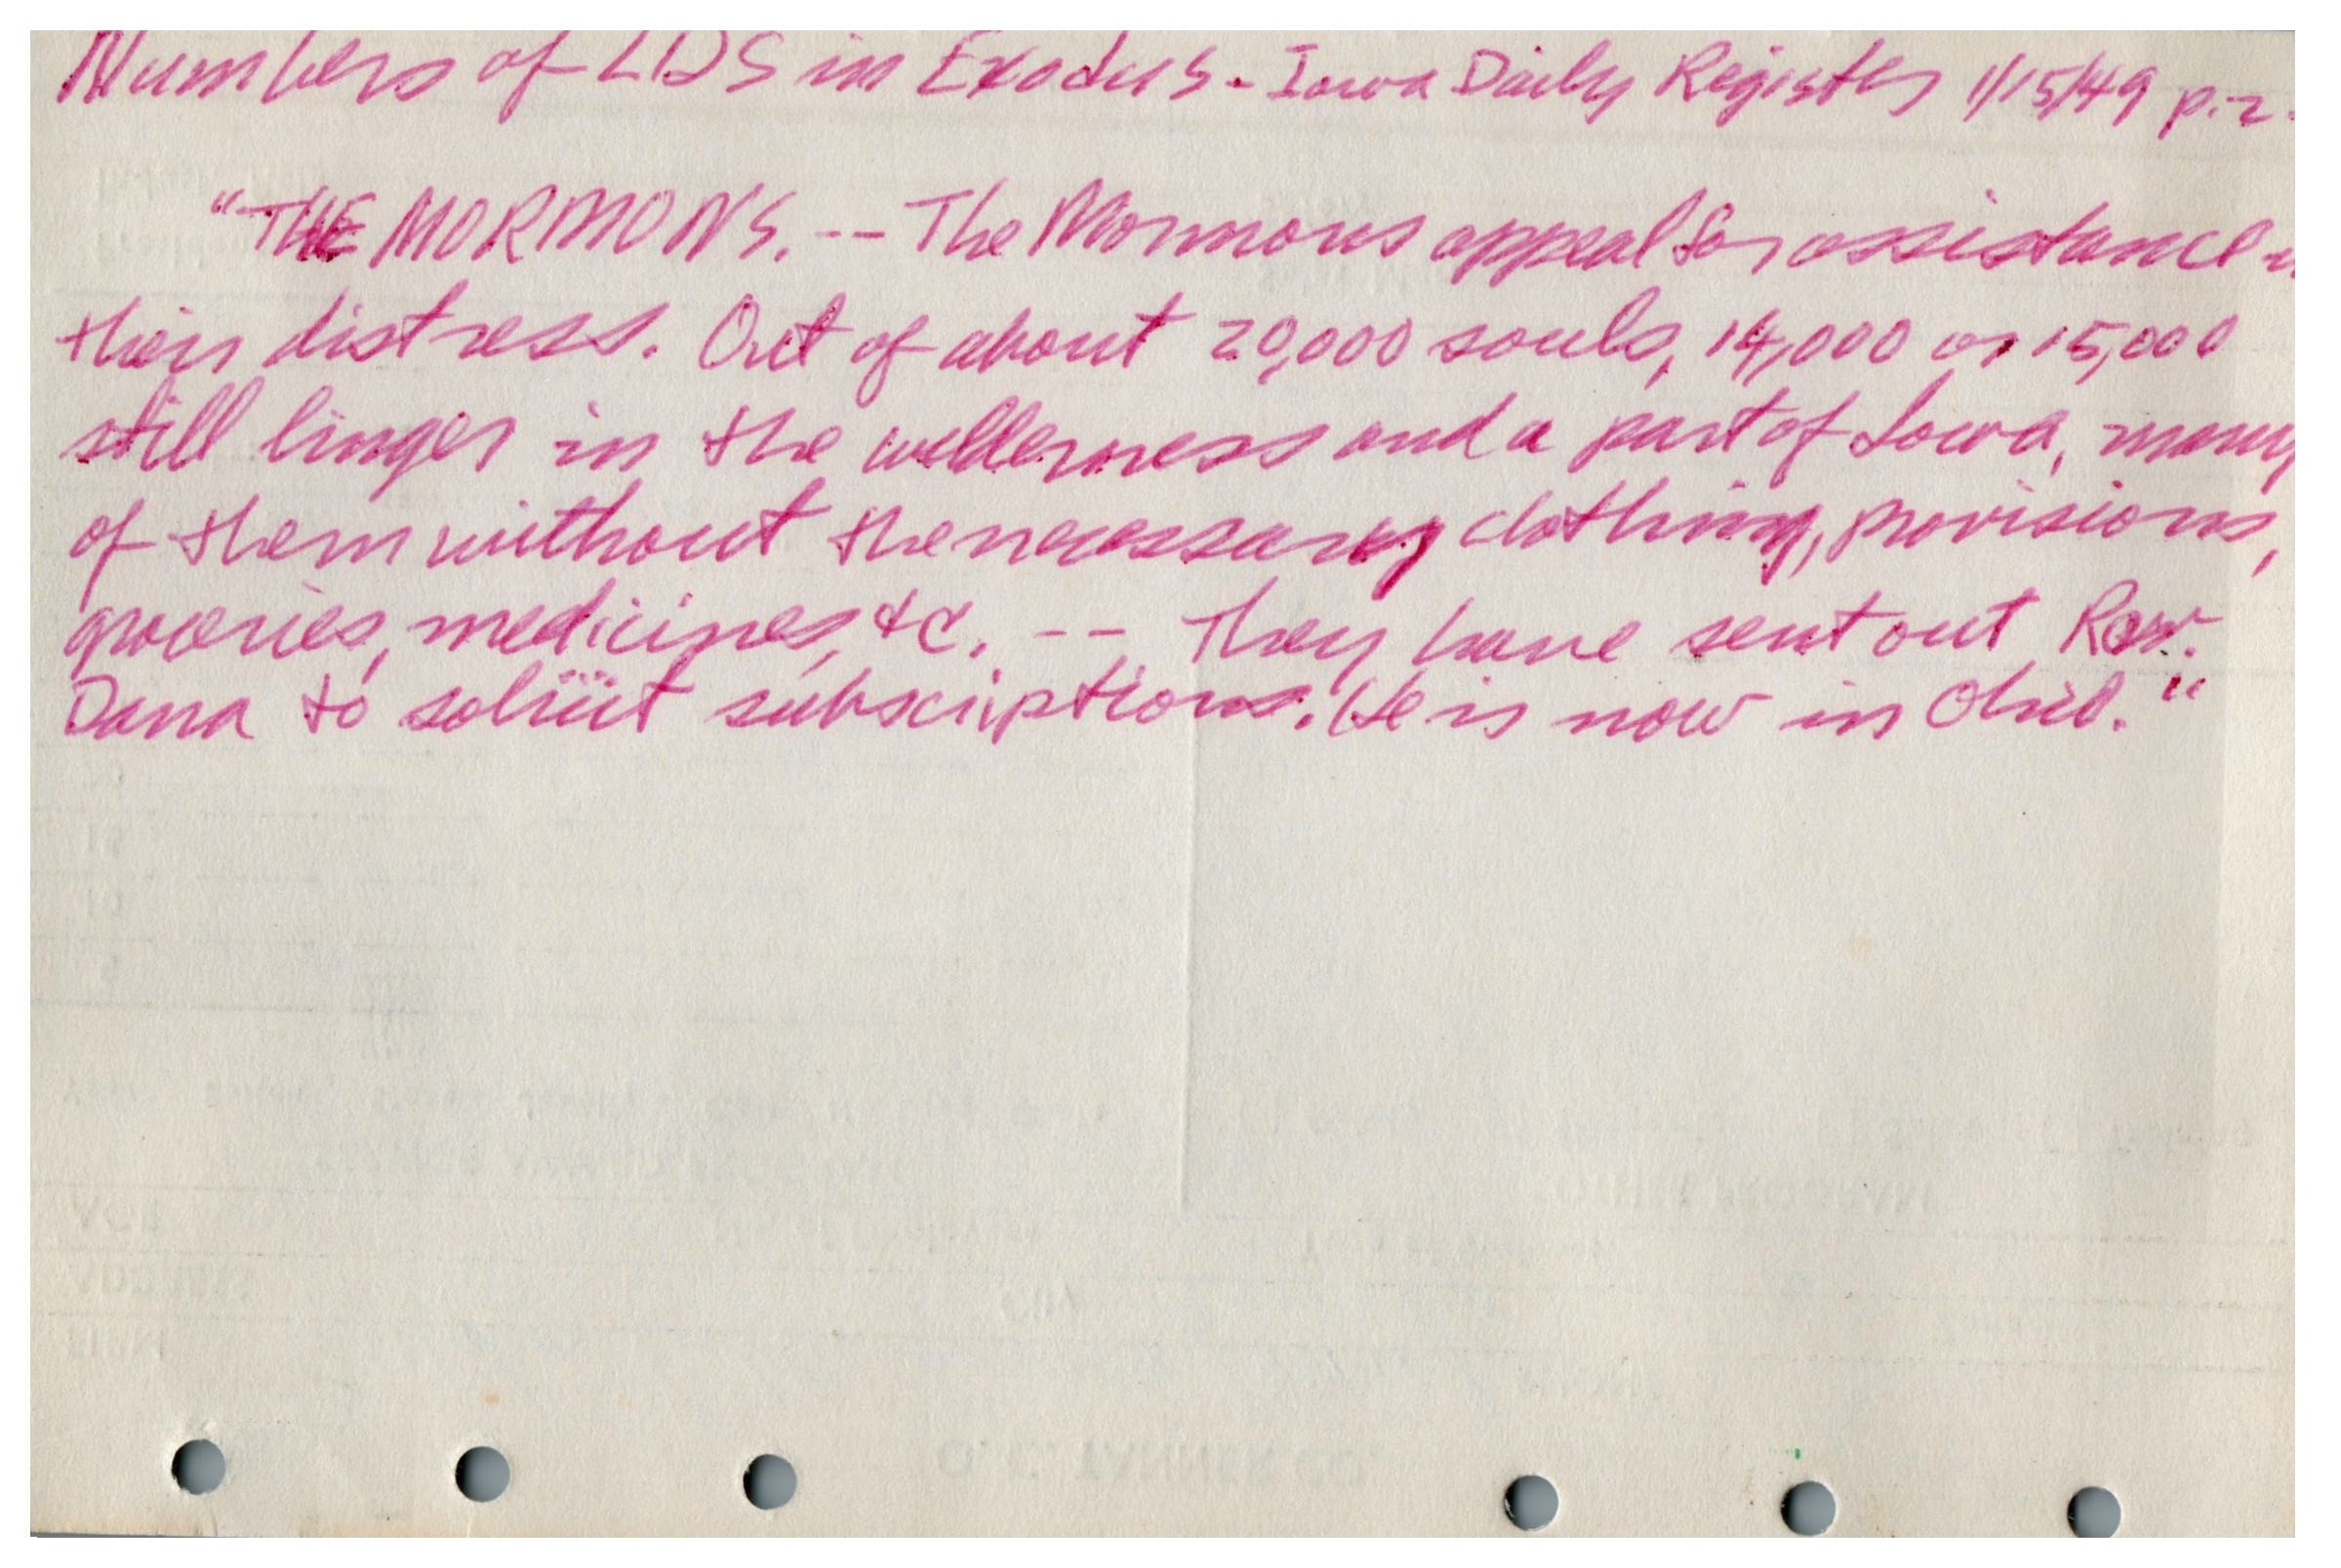 Numbers of LDS in Exodus - Iowa Daily Register 1/15/49 p. 2.
"THE MORMONS. -- The Mormons appeal for assistance
their distress. Out of about 20,000 souls, 14,000 or 15,000
still linger in the wilderness and a part of Iowa, many
of them without the necessary clothing, provisions,
groceries, medicines, &c. -- They have sent out Rev.
Dana to soliicit subscriptions. He is now in Ohio."
O. C. TANNER CO.